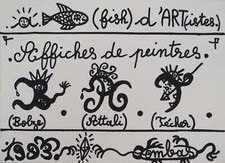 (fish) d'ARTistes.)
Affiches de peintres.
(Bobre) (Attali) (Tücher)
1993. Lombas